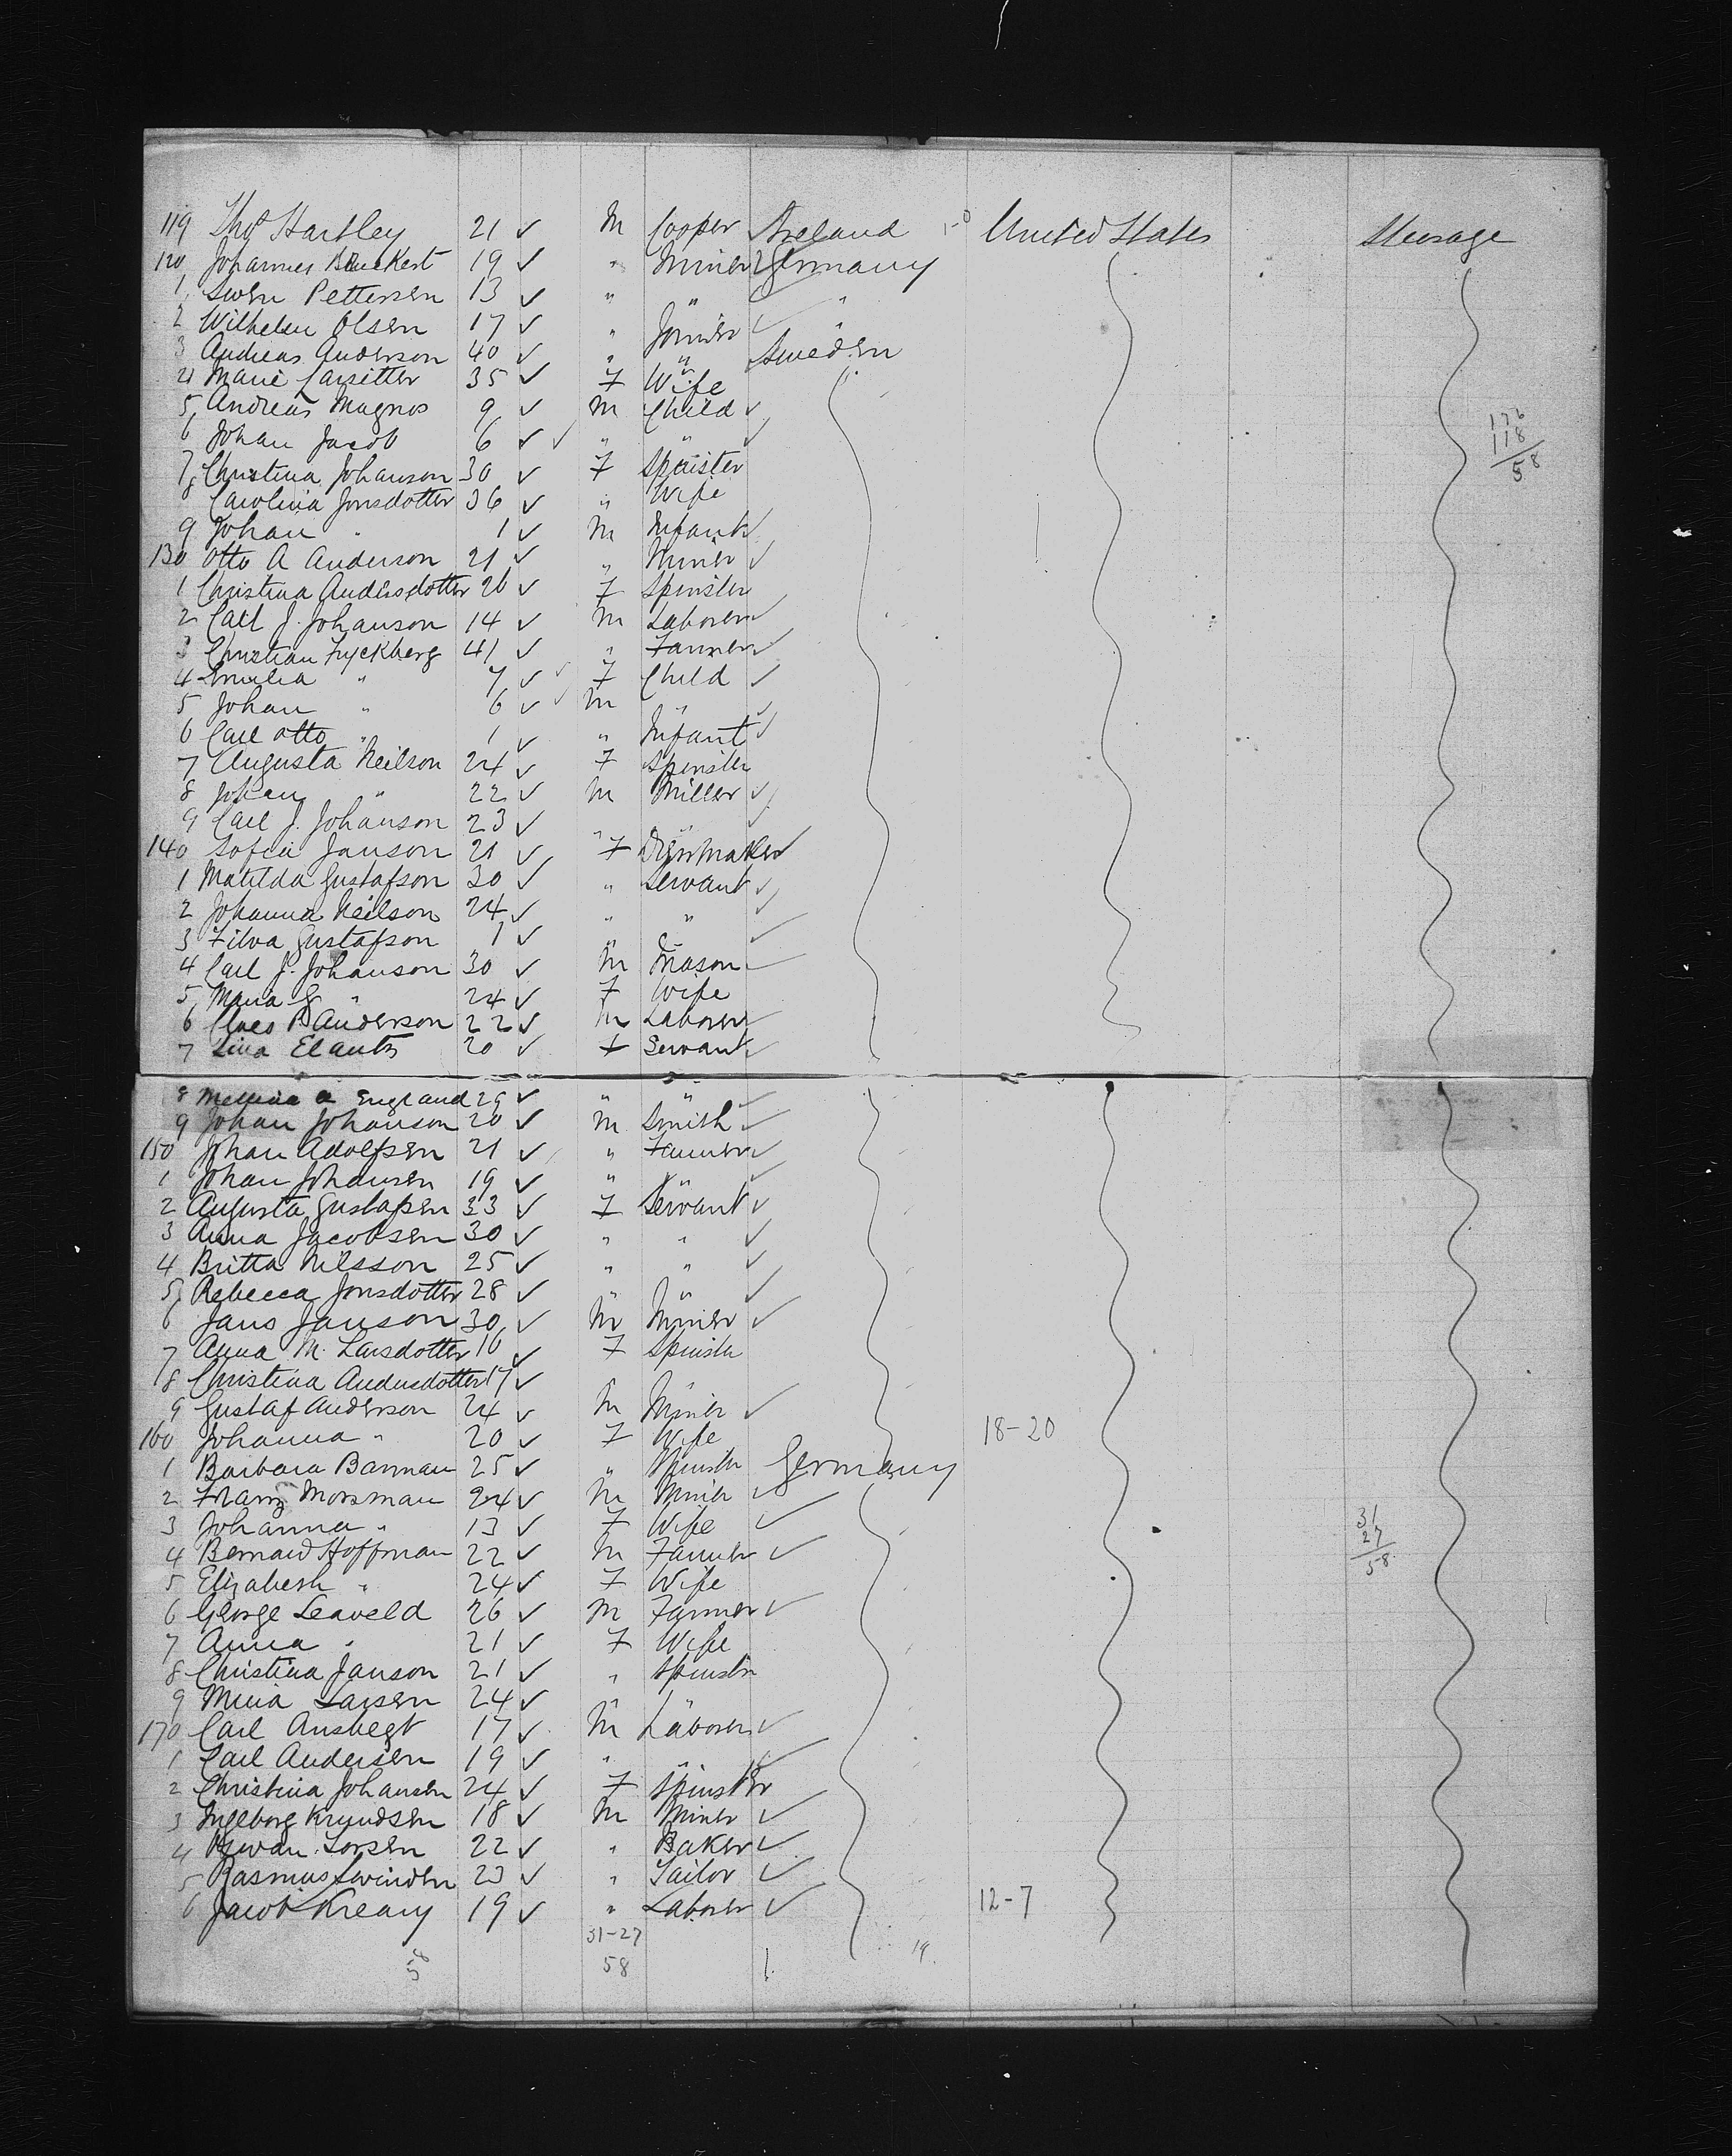 119 Thos Hartley 21 ✓ M Cooper Ireland United States Steerage
120 Johannes 19 ✓ " Miner Germany
1 Swen Pettersen 13 ✓ " " "
2 Wilhelm Olsen 17 ✓ " Joiner "
3 Andreas Anderson 40 ✓ " " Sweden
4 Marie 35 ✓ F Wife
5 Andreas Magnos 9 ✓ M Child ✓
6 Johan Jacob 6 ✓ ✓ " " ✓
176
118
58
7 Christina Johanson 30 ✓ F Spinster
8 Carolina Jonsdotter 36 ✓ " Wife
9 Johan " 1 ✓ M Infant ✓
130 Otto A Anderson 21 ✓ " Miner ✓
1 Christina Andersdotter 26 ✓ F Spinster
2 Carl J. Johanson 14 ✓ M Laborer ✓
3 Christian Fryckberg 41 ✓ " Farmer ✓
4 Emilia " 7 ✓ F Child ✓
5 Johan " 6 ✓ M " ✓
6 Carl Otto " 1 ✓ " Infant ✓
7 Augusta Neilson 24 ✓ F Spinster
8 Johan " 22 ✓ M Miller ✓
9 Carl J. Johanson 23 ✓ " " ✓
140 Sofia Janson 21 ✓ F Dressmaker ✓
1 Matilda Gustafson 30 ✓ " Servant ✓
2 Johanna Neilson 24 ✓ " " ✓
3 Gustafson 1 ✓ " " ✓
4 Carl J. Johanson 30 ✓ M Mason ✓
5 Maria G " 24 ✓ F Wife
6 Claes P Anderson 22 ✓ M Laborer ✓
7 Lina 20 ✓ F Servant ✓
8 England 29 ✓ " " ✓
9 Johan Johanson 20 ✓ M Smith ✓
150 Johan Adolfsen 21 ✓ " Farmer ✓
1 Johan Johansen 19 ✓ " " ✓
2 Augusta Gustafsen 33 ✓ F Servant ✓
3 Anna Jacobsen 30 ✓ " " ✓
4 Britta Nilsson 25 ✓ " " ✓
5 Rebecca Jonsdotter 28 ✓ " " ✓
6 Jans Janson 30 ✓ M Miner ✓
7 Anna M. Larsdotter 16 ✓ F Spinster
8 Christina Andersdotter 17 ✓ " "
9 Gustaf Anderson 24 ✓ M Miner ✓
160 Johanna " 20 ✓ F Wife 18-20
1 Barbara Barman 25 ✓ " Spinster Germany
2 Franz Morsman 24 ✓ M Miner ✓
3 Johanna " 13 ✓ F Wife ✓
4 Bernard Hoffman 22 ✓ M Farmer ✓
31
27
58
5 Elizabesh " 24 ✓ F Wife
6 George Leaveld 26 ✓ M Farmer ✓
7 Anna " 21 ✓ F Wife
8 Christina Janson 21 ✓ " Spinster
9 Larsen 24 ✓ " "
170 Carl 17 ✓ M Laborer ✓
1 Carl Andersen 19 ✓ " " ✓
2 Christina Johansen 24 ✓ F Spinster
3 Ingeborg Knundsen 18 ✓ M Miner ✓
4 22 ✓ " Baker ✓
5 Rasmus 23 ✓ " Tailor ✓
6 Jacob Kreany 19 ✓ " Laborer ✓ 12-7
31-27
58 58 19